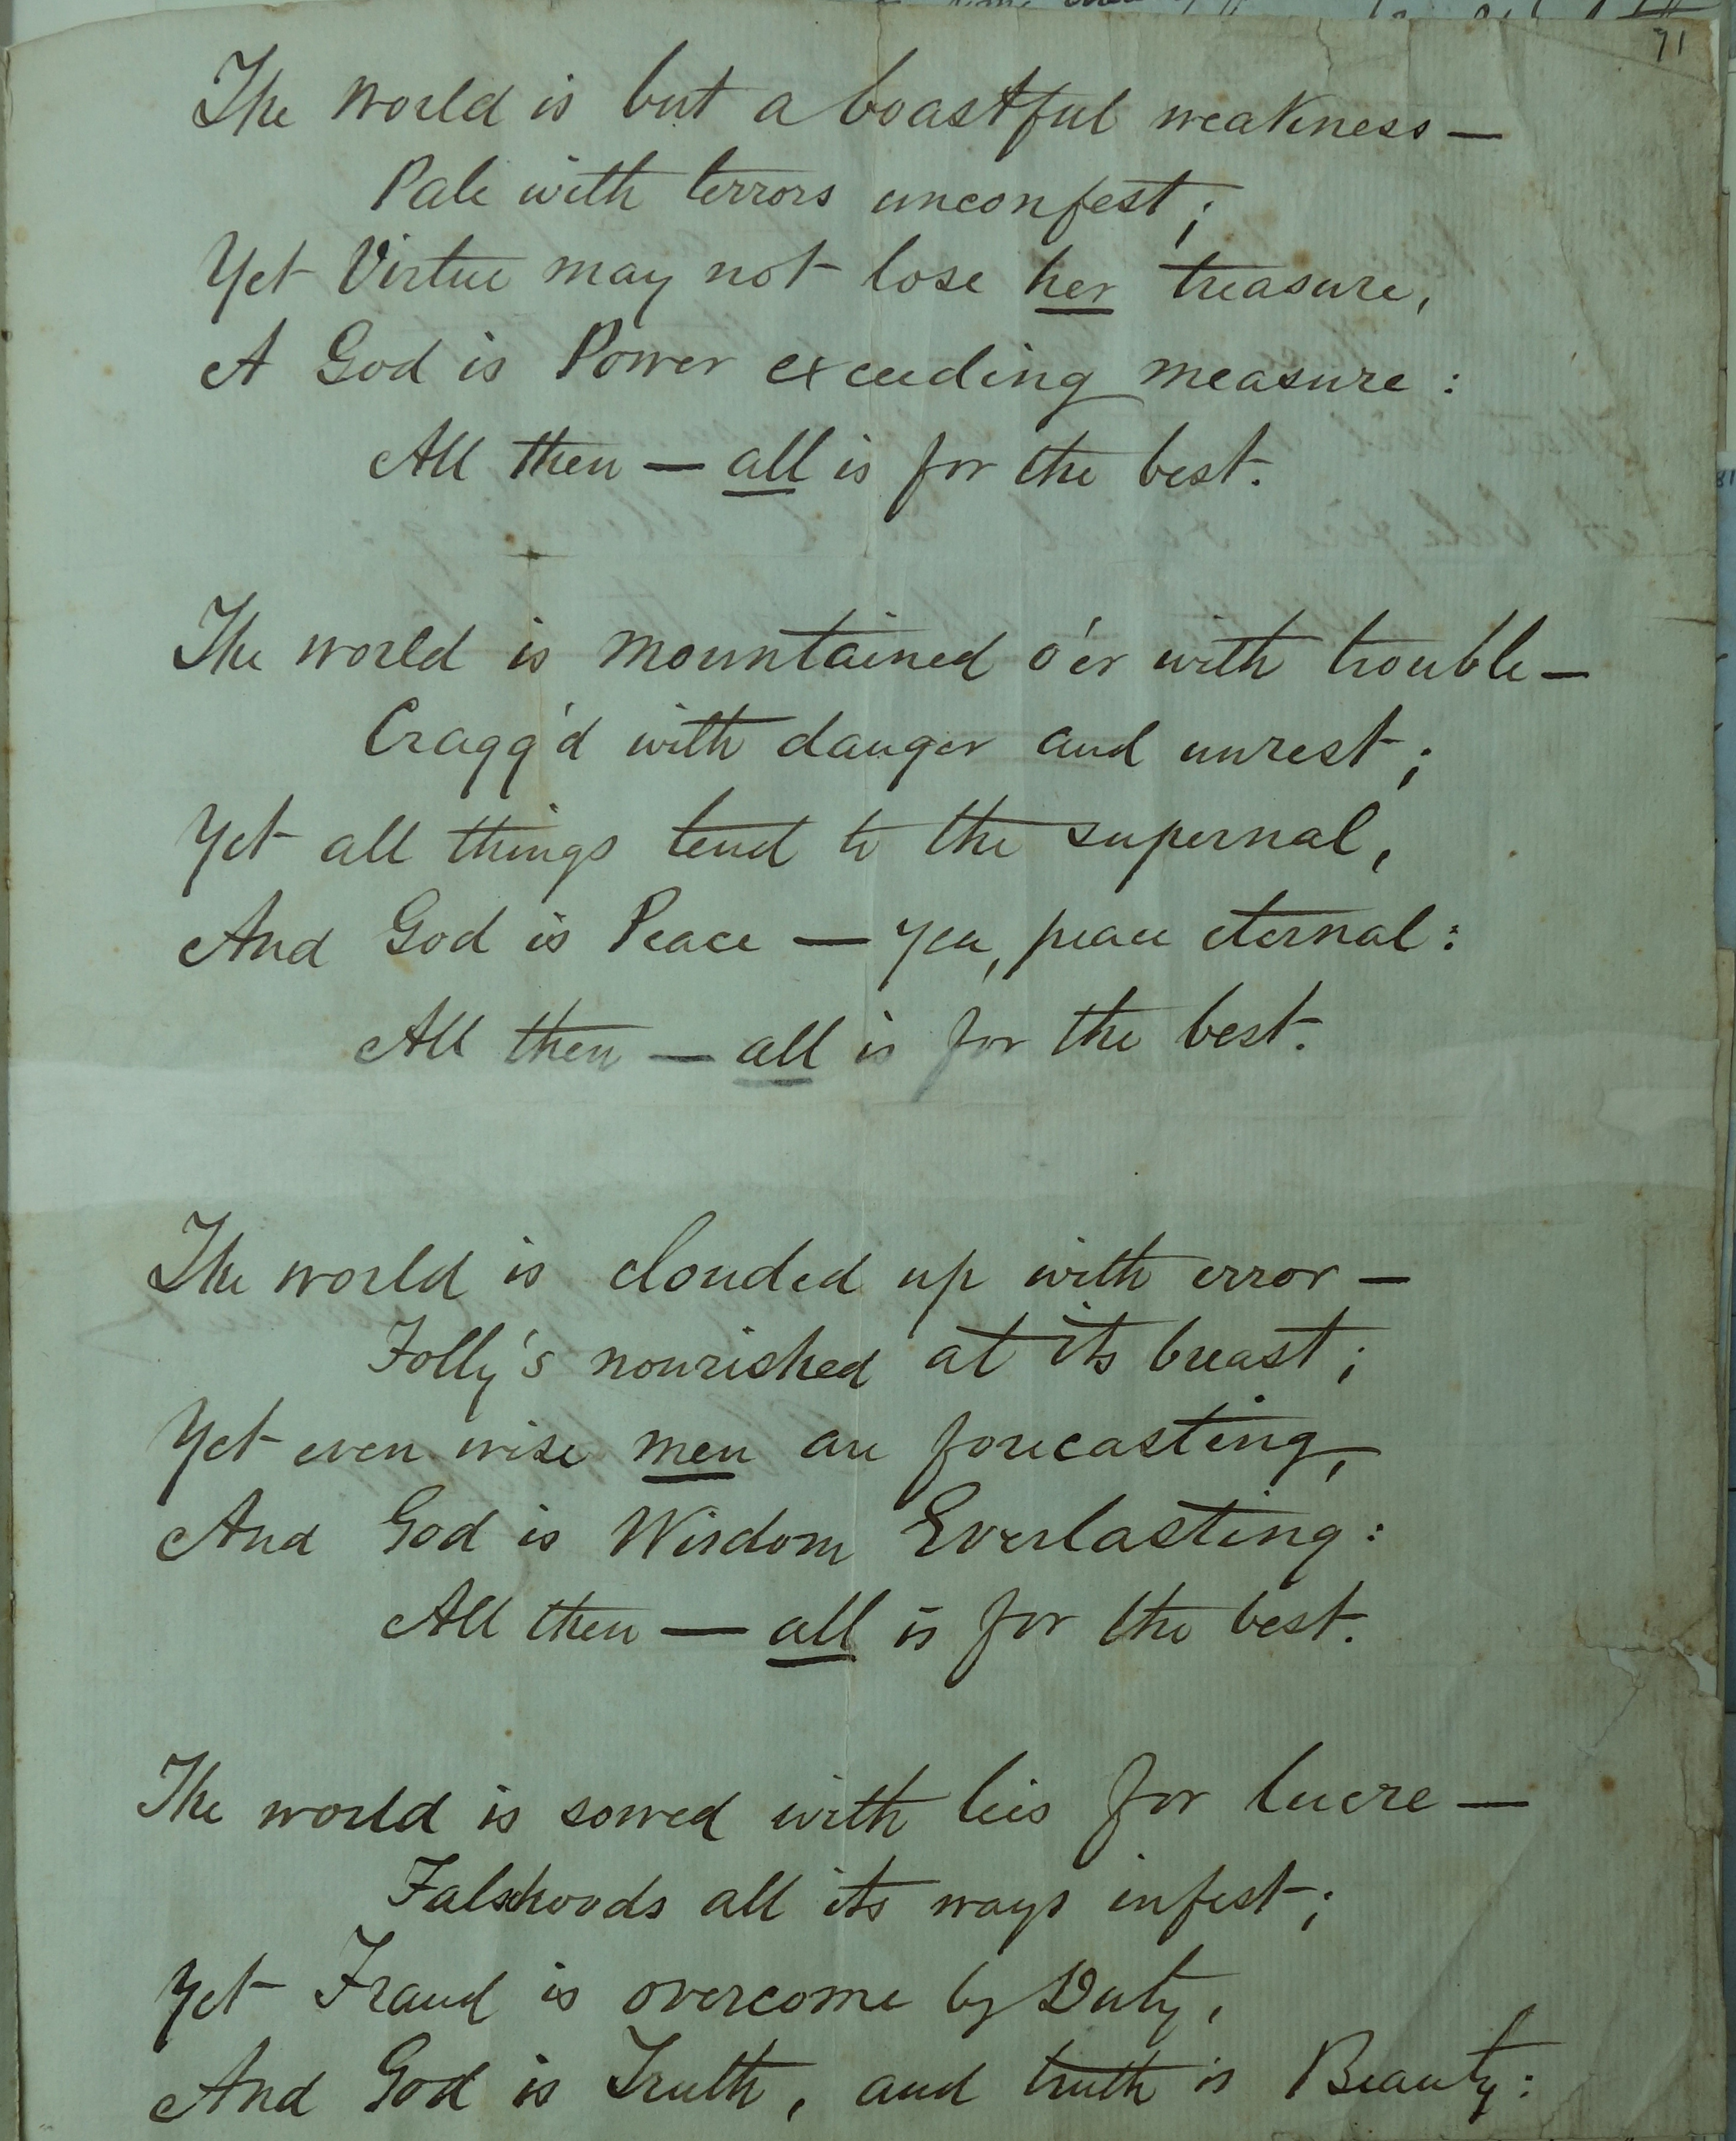 71
The world is but a boastful weakness —
Pale with terrors unconfest;
Yet Virtue may not lose her treasure,
A God is Power exceeding measure:
All then — all is for the best.
The world is mountained o'er with trouble —
Cragg'd with danger and unrest;
Yet all things tend to the supernal,
And God is Peace — yea, peace eternal:
All then — all is for the best.
The world is clouded up with error —
Folly's nourished at its breast;
Yet even wise men are forecasting,
And God is Wisdom Everlasting:
All then — all is for the best.
The world is sowed with lies for lucre —
Falsehoods all its ways infest;
Yet Fraud is overcome by Duty,
And God is Truth, and truth is Beauty: